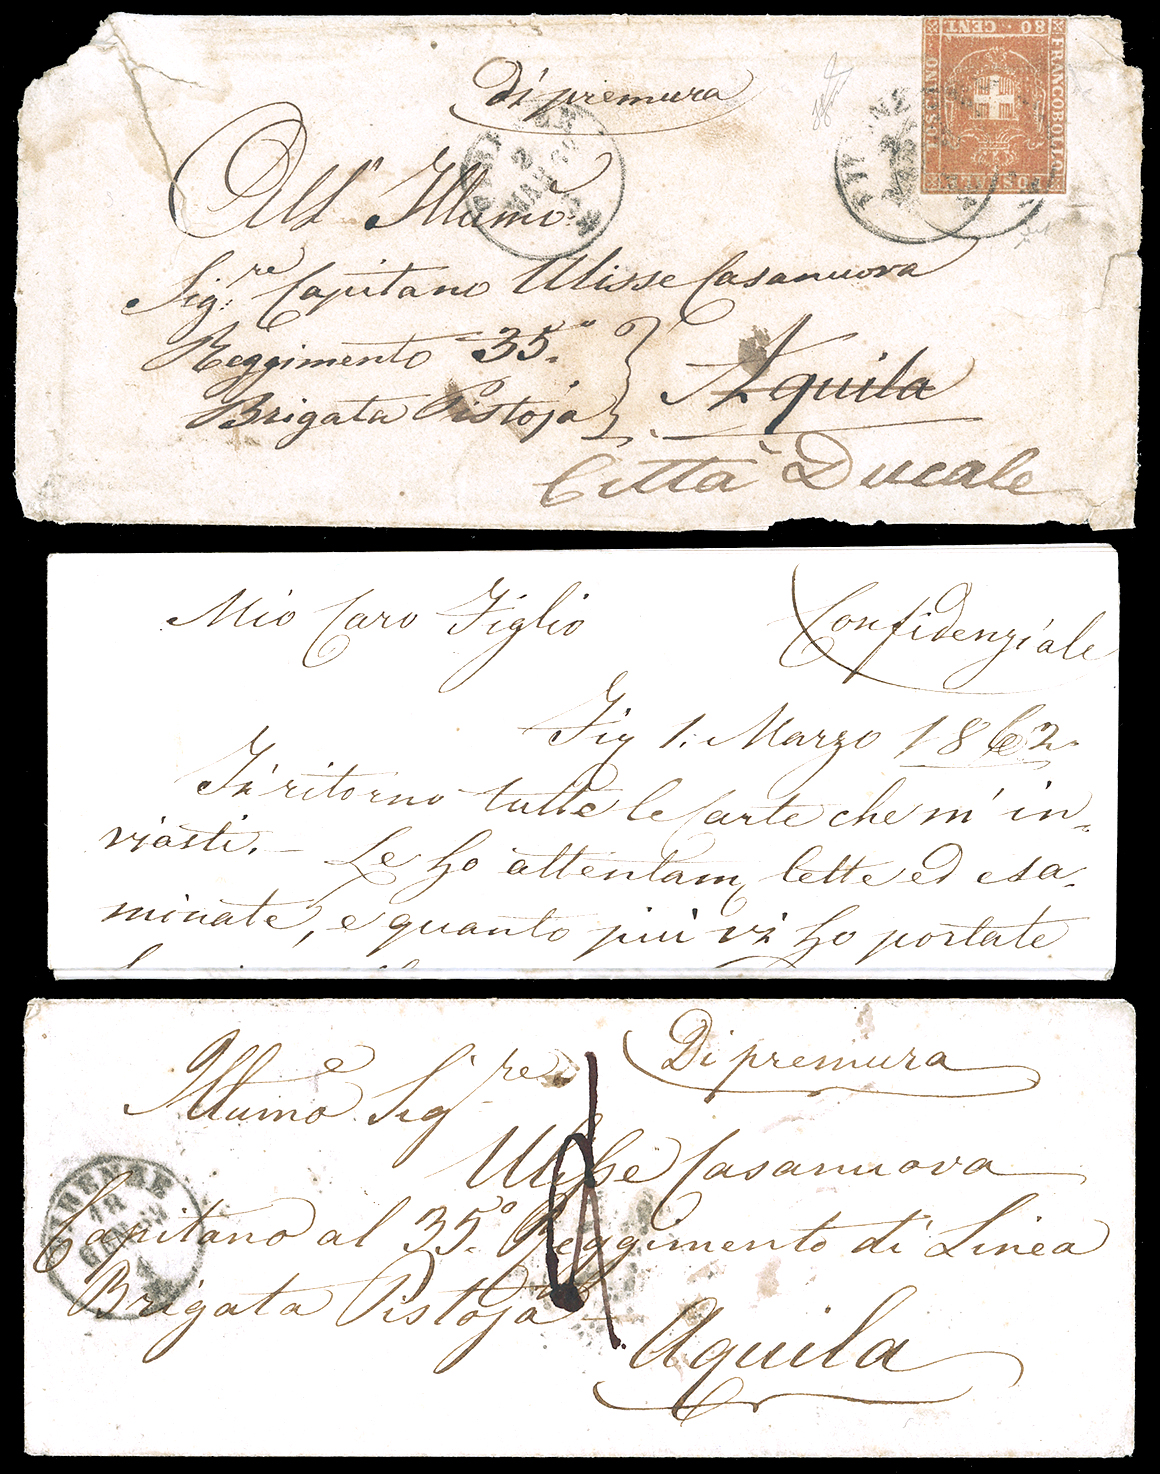 Di premura
FRANCOBOLLO
POSTALE
TOSCANO
80 CENT.
FIRENZE
2
MAR 62
All' Illumō.
Sig.re Capitano Ulisse Casanuova
Reggimento 35.°
Brigata Pistoja
Aquila
Città Ducale
Mio Caro Figlio
Confidenziale
1. Marzo 1862
In ritorno tutte le carte che m' in-
viasti. — Le ho attentam lette ed esa-
minate, e quanto più vi ho portate
Di premura
Illumo e Sigre
Ulisse Casanuova
FIRENZE
18
Capitano al 35.° Reggimento di Linea
Brigata Pistoja
Aquila